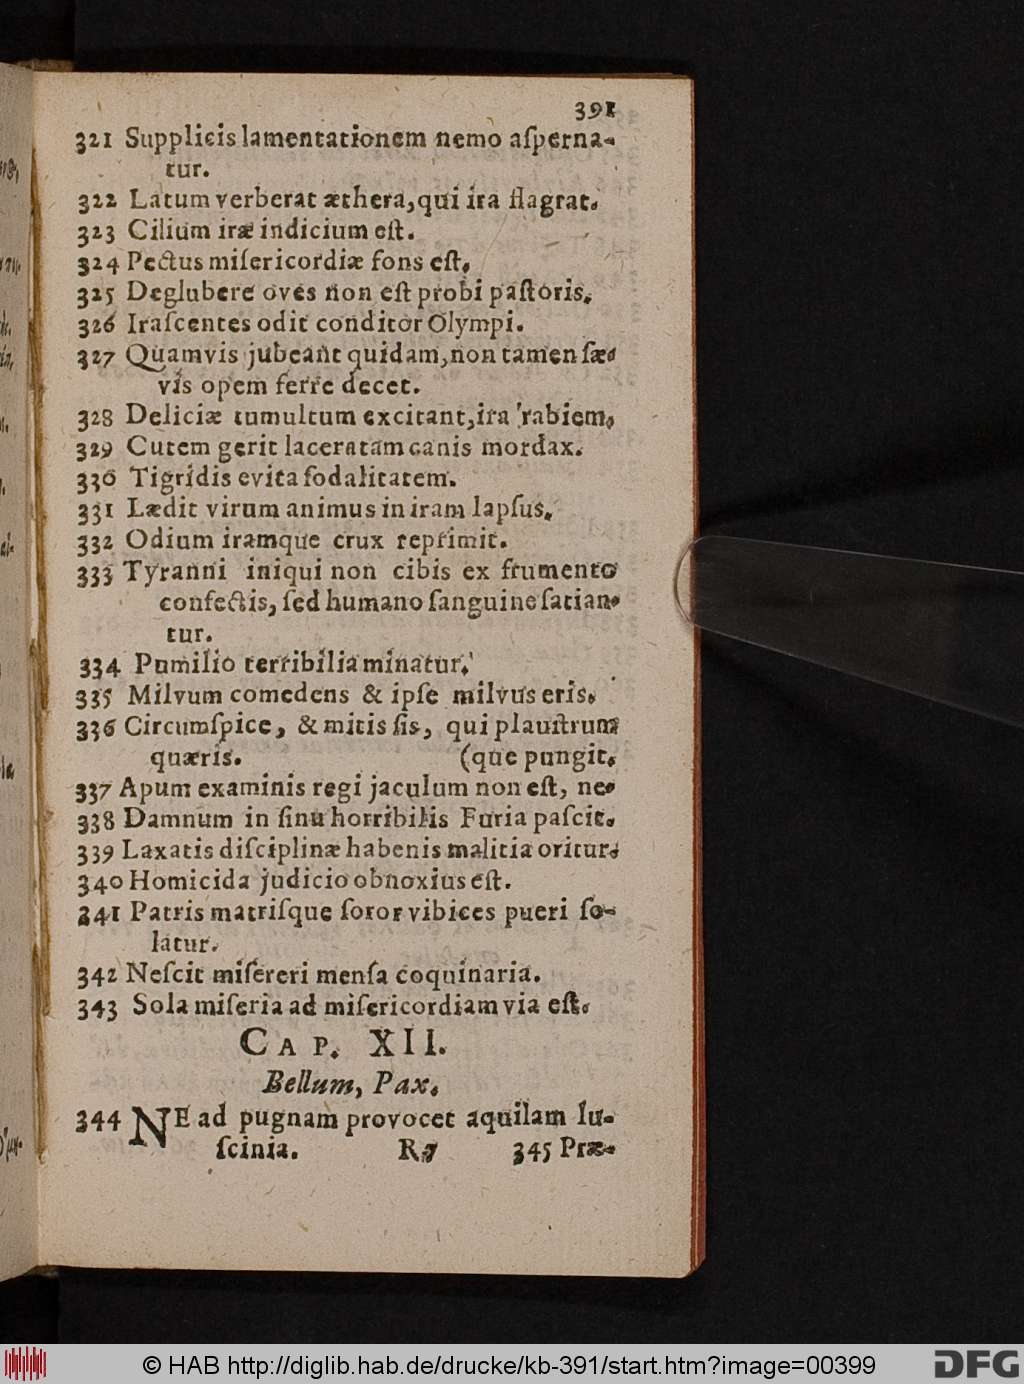 391
321 Supplicis lamentationem nemo aſperna-
tur.
322 Latum verberat æthera, qui ira flagrat.
323 Cilium iræ indicium eſt.
324 Pectus miſericordiæ fons eſt.
325 Deglubere oves non eſt probi paſtoris.
326 Iraſcentes odit conditor Olympi.
327 Quamvis jubeant quidam, non tamen ſæ-
vis opem ferre decet.
328 Deliciæ tumultum excitant, ira rabiem.
329 Cutem gerit laceratam canis mordax.
330 Tigridis evita ſodalitatem.
331 Lædit virum animus in iram lapſus.
332 Odium iramque crux reprimit.
333 Tyranni iniqui non cibis ex frumento
confectis, ſed humano ſanguine ſatian-
tur.
334 Pumilio terribilia minatur.
335 Milvum comedens & ipſe milvus eris.
336 Circumſpice, & mitis ſis, qui plauſtrum
quæris. (que pungit.
337 Apum examinis regi jaculum non eſt, ne-
338 Damnum in ſinu horribilis Furia paſcit.
339 Laxatis diſciplinæ habenis malitia oritur.
340 Homicida judicio obnoxius eſt.
341 Patris matriſque ſoror vibices pueri ſo-
latur.
342 Neſcit miſereri menſa coquinaria.
343 Sola miſeria ad miſericordiam via eſt.
CAP. XII.
Bellum, Pax.
344 NE ad pugnam provocet aquilam lu-
ſcinia. R 7 345 Præ-
© HAB http://diglib.hab.de/drucke/kb-391/start.htm?image=00399 DFG